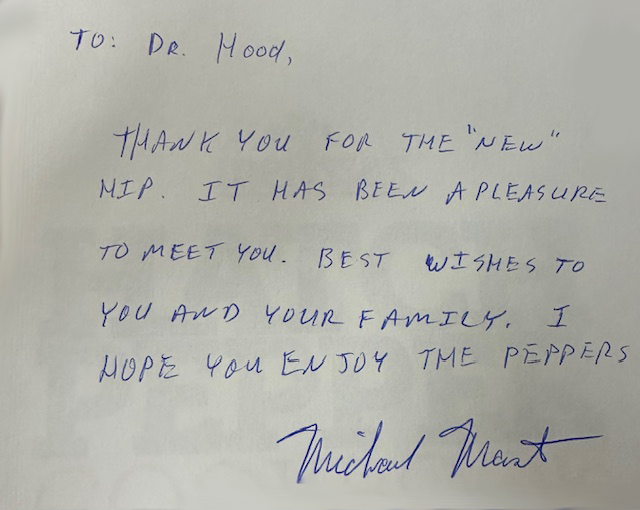 TO: DR. Hood,
THANK YOU FOR THE "NEW"
HIP. IT HAS BEEN A PLEASURE
TO MEET YOU. BEST WISHES TO
YOU AND YOUR FAMILY. I
HOPE YOU ENJOY THE PEPPERS
Michael Mast